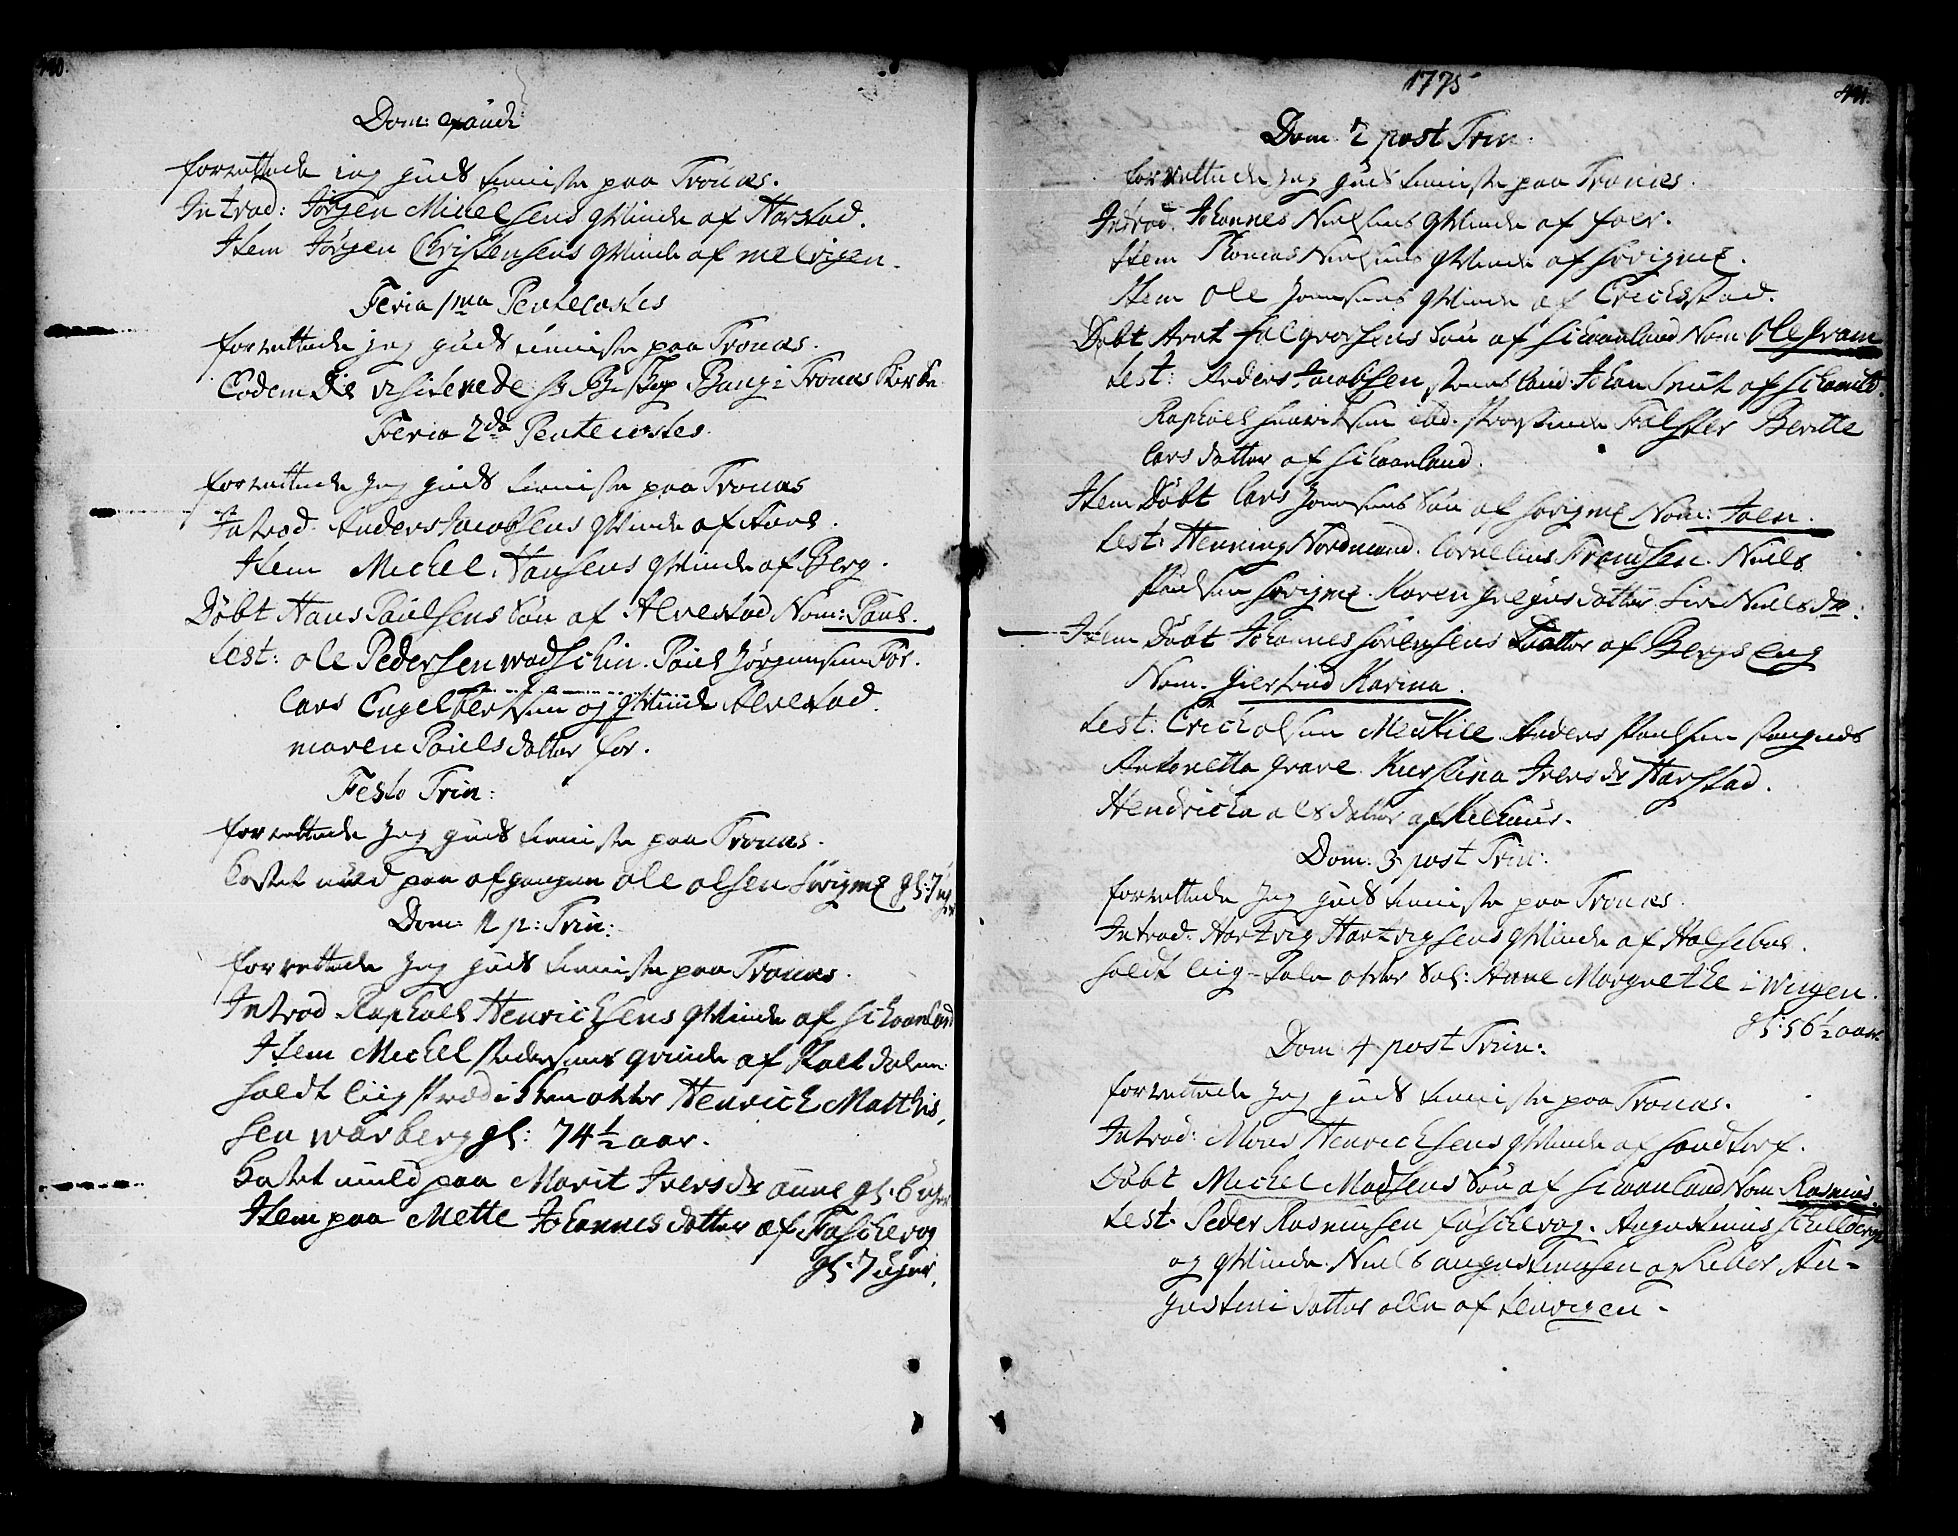 Dom: exaudi
forrettede ieg Guds tieniste paa Tronæs.
Introd: Jørgen Michelsens qvinde af Harstad.
Item Jørgen Christensens qvinde af melvigen.
Feria 1ma Pentecostes
forrettede jeg Guds tieniste paa Tronæs.
Eodem Die visiterede hr Biskop Bang i Tronæs Kirke.
Feria 2da Pentecostes.
forrettede Jeg Guds tieniste paa Tronæs
Introd. Anders Jacobsens qvinde af
Item Michel Hansens qvinde af Berg.
Døbt Hans Paulsens Søn af Alvestad Nom: Paul.
Test: Ole Pedersen wadschin. Paul Jørgensen For.
Lars Engelbertsen og qvinde Alvestad.
maren Paulsdatter for.
Festo Trin:
forrettede Jeg Guds tieniste paa Tronæs.
Castet muld paa afgangne Ole Olsen Sørvigme gl: 7 uger
Dom. 1 p: Trin:
forrettede Jeg Guds tieniste paa Tronæs.
Introd Raphael Henrichsens qvinde af schaanland
Item Michel Pedersens qvinde af
holdt liig Prædichen over Henrich Matthis,
sen warberg gl: 74½ aar.
Castet muld paa Marit Iversdr aune gl: 6 uger
Item paa Mette Johannesdatter af Faschevog
gl: 7 uger.
1775
441.
Dom. 2 post Trin:
forrettede Jeg Guds tieniste paa Tronæs.
Introd. Johannes Nielsens qvinde af foer.
Item Thomas Nielsens qvinde af Sørvigme.
Item Ole Joensens qvinde af Erichstad.
Døbt Arnt Salgversens Søn af schaanland Nom: Ole
Test: Anders Jacobsen, Johan af schaanld.
Raphael Henrichsen ibd. Falster Beritte
Larsdatter af schaanland.
Item Døbt Lars Joensens Søn af Sørvigme Nom: Joen.
Test: Henning Nordmand. Cornelius Frandsen. Niels
Paulsen Sørvigme. Karen datter. Siri Nielsdr.
Item Døbt Johannes Sørensens Datter af Bergseng
Nom. Giertrud Karina.
Test: Erich Olsen Anders Paulsen
Antonetta Grave. Kierstina Iversdr Harstad.
Hendricka Olsdatter af
Dom: 3 post Trin:
forrettede Jeg Guds tieniste paa Tronæs.
Introd. Hartvig Hartvigsens qvinde af Halsebøe.
holdt liig-Tale over Sal: Anne Margrethe i Wiigen.
gl: 56½ aar.
Dom: 4 post Trin:
forrettede Jeg Guds tieniste paa Tronæs.
Introd: Mons Henrichsens qvinde af Sandtorf.
Døbt Michel Madsens Søn af schaanland Nom. Rasmus.
Test. Peder Rasmusen faschevog. Augustinus
og qvinde. Niels augustinusen og Au-
gustini datter alle af tenvigen.